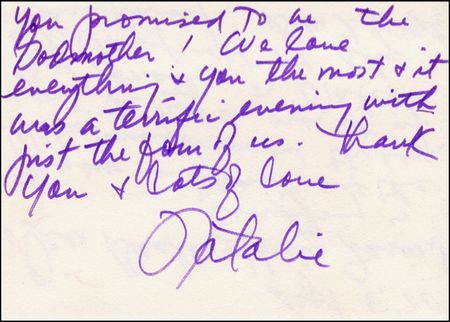 You promised to be the
Godmother! We love
everything & you the most & it
was a terrific evening with
just the four of us. Thank
You & lots of love
Natalie